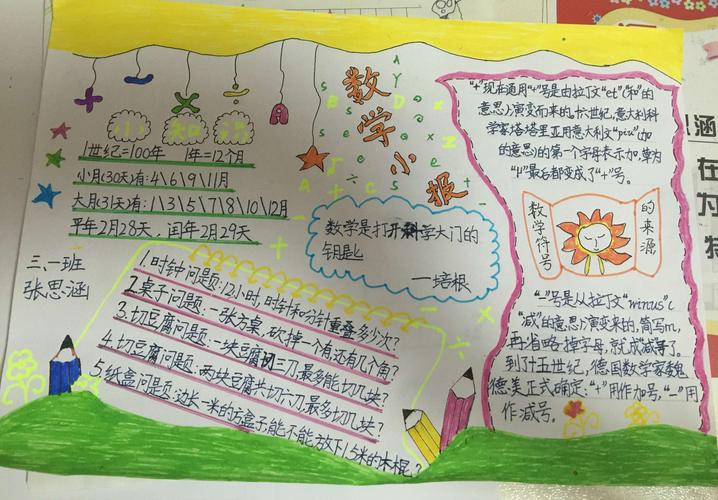 数学小报
小知识
1世纪=100年 1年=12个月
小月(30天)有:4\6\9\11月
大月(31天)有:1\3\5\7\8\10\12月
平年2月28天，闰年2月29天
三、一班
张思涵
数学是打开科学大门的
钥匙
一培根
1.时钟问题:12小时,时针和分针重叠多少次?
2.桌子问题:一张方桌,砍掉一个有,还有几个角?
3.切豆腐问题:一块豆腐切三刀,最多能切几块?
4.切豆腐问题:两块豆腐共切六刀,最多切几块?
5.纸盒问题:边长一米的方盒子能不能放下1.5米的木棍?
"+"现在通用"+"号是由拉丁文"et"("和"的
意思)演变而来的。十六世纪,意大利科
学家塔塔里亚用意大利文"pis"(加
的意思)的第一个字母表示加,草为
"μ"最后都变成了"+"号。
数学符号
的来源
"-"号是从拉丁文"minus"(
"减"的意思)演变来的,简写m,
再省略掉字母,就成减等了。
到了十五世纪,德国数学家魏
德美正式确定:"+"用作加号,"-"用
作减号。
涵
在
为
特